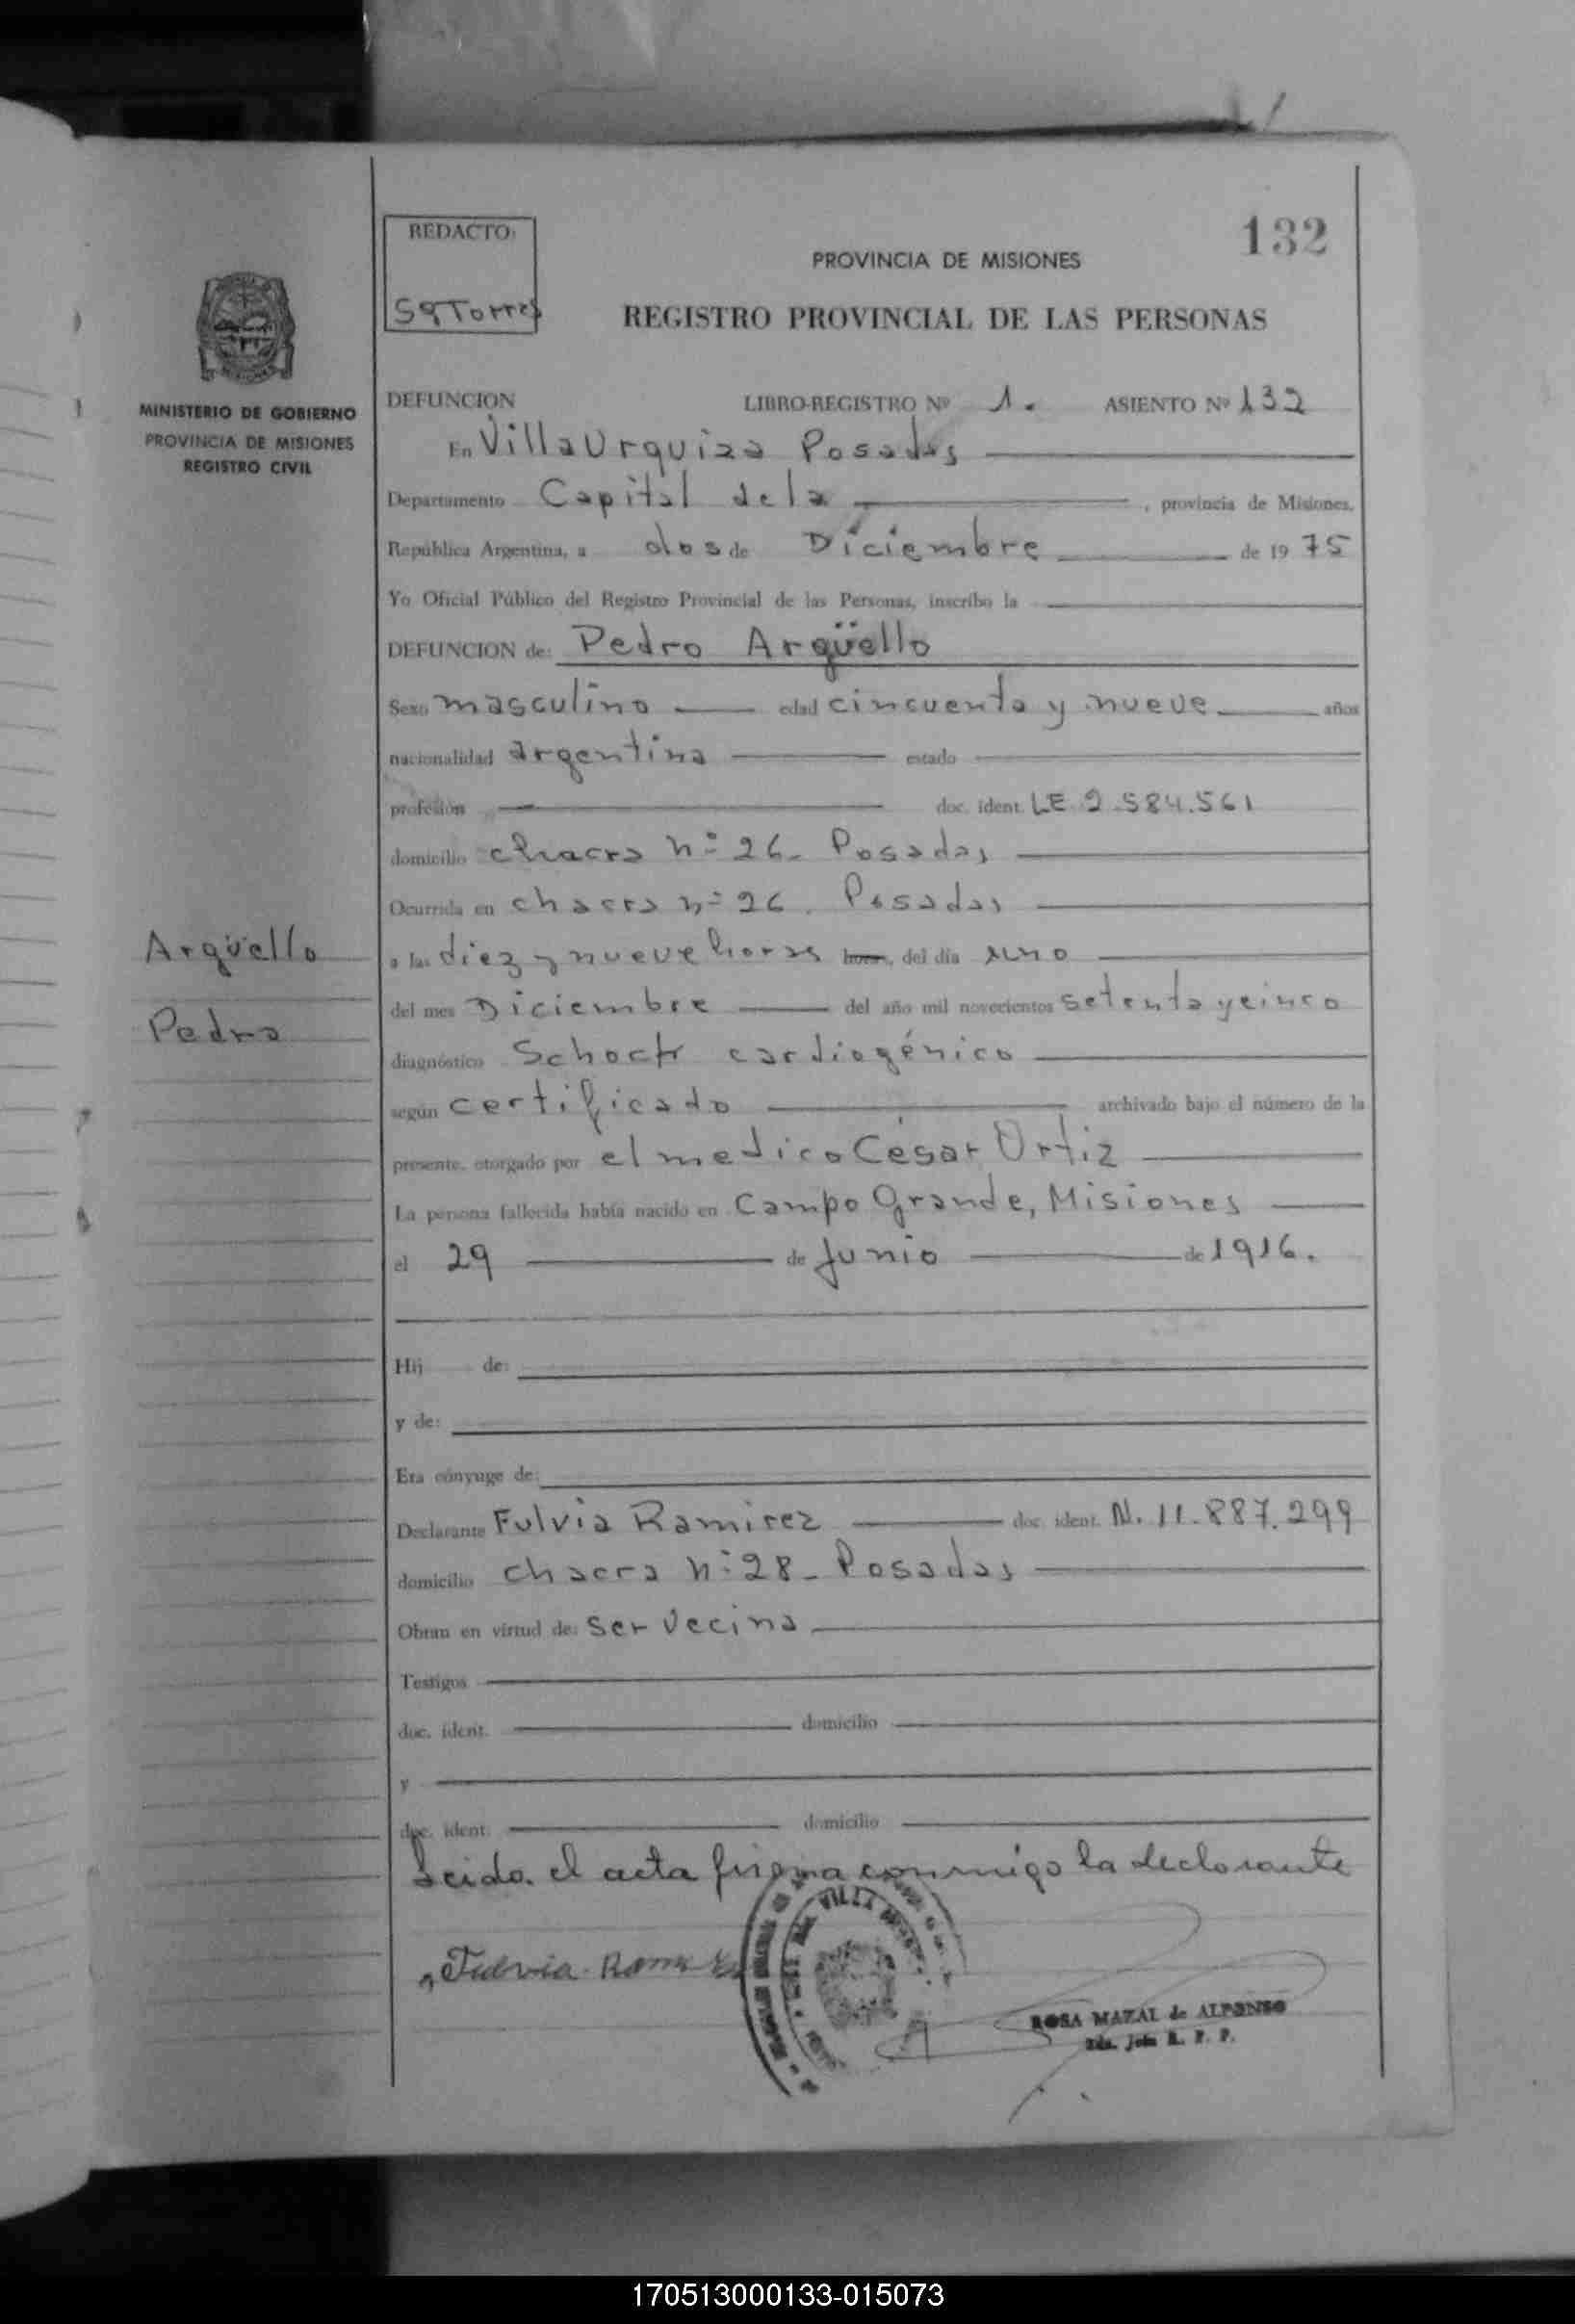 132
REDACTO:
PROVINCIA DE MISIONES
REGISTRO PROVINCIAL DE LAS PERSONAS
MINISTERIO DE GOBIERNO
PROVINCIA DE MISIONES
REGISTRO CIVIL
DEFUNCION LIBRO-REGISTRO Nº 1. ASIENTO Nº 132
En Villa Urquiza Posadas
Departamento Capital de la , provincia de Misiones,
República Argentina, a dos de Diciembre de 19 75
Yo Oficial Público del Registro Provincial de las Personas, inscribo la
DEFUNCION de: Pedro Argüello
Sexo masculino edad cincuenta y nueve años
nacionalidad argentina estado
profesión doc. ident. LE 2.584.561
domicilio chacra nº 26. Posadas
Ocurrida en chacra nº 26. Posadas
a las diez y nueve horas horas, del día uno
del mes Diciembre del año mil novecientos setenta y cinco
diagnóstico Schock cardiogénico
según certificado archivado bajo el número de la
presente, otorgado por el medico César Ortiz
La persona fallecida había nacido en Campo Grande, Misiones
el 29 de Junio de 1916.
Argüello
Pedro
Hij de:
y de:
Era cónyuge de:
Declarante Fulvia Ramirez doc. ident. N. 11.887.299
domicilio chacra nº 28 - Posadas
Obran en virtud de: ser vecina
Testigos
doc. ident. domicilio
y
doc. ident. domicilio
Leida el acta firma conmigo la declarante
Fulvia Ramirez
VILLA
ROSA MAZAL de ALFONSO
R. P. P.
170513000133-015073